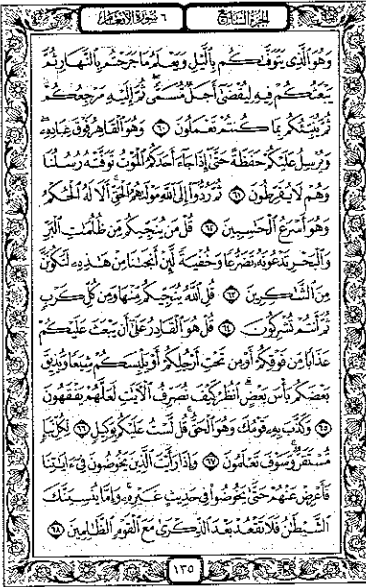 الجزء السابع
٦ سورة الأنعام
وَهُوَ ٱلَّذِى يَتَوَفَّىٰكُم بِٱلَّيْلِ وَيَعْلَمُ مَا جَرَحْتُم بِٱلنَّهَارِ ثُمَّ
يَبْعَثُكُمْ فِيهِ لِيُقْضَىٰٓ أَجَلٌ مُّسَمًّى ثُمَّ إِلَيْهِ مَرْجِعُكُمْ
ثُمَّ يُنَبِّئُكُم بِمَا كُنتُمْ تَعْمَلُونَ ٦٠ وَهُوَ ٱلْقَاهِرُ فَوْقَ عِبَادِهِۦ
وَيُرْسِلُ عَلَيْكُمْ حَفَظَةً حَتَّىٰٓ إِذَا جَآءَ أَحَدَكُمُ ٱلْمَوْتُ تَوَفَّتْهُ رُسُلُنَا
وَهُمْ لَا يُفَرِّطُونَ ٦١ ثُمَّ رُدُّوٓا۟ إِلَى ٱللَّهِ مَوْلَىٰهُمُ ٱلْحَقِّ أَلَا لَهُ ٱلْحُكْمُ
وَهُوَ أَسْرَعُ ٱلْحَٰسِبِينَ ٦٢ قُلْ مَن يُنَجِّيكُم مِّن ظُلُمَٰتِ ٱلْبَرِّ
وَٱلْبَحْرِ تَدْعُونَهُۥ تَضَرُّعًا وَخُفْيَةً لَّئِنْ أَنجَىٰنَا مِنْ هَٰذِهِۦ لَنَكُونَنَّ
مِنَ ٱلشَّٰكِرِينَ ٦٣ قُلِ ٱللَّهُ يُنَجِّيكُم مِّنْهَا وَمِن كُلِّ كَرْبٍ
ثُمَّ أَنتُمْ تُشْرِكُونَ ٦٤ قُلْ هُوَ ٱلْقَادِرُ عَلَىٰٓ أَن يَبْعَثَ عَلَيْكُمْ
عَذَابًا مِّن فَوْقِكُمْ أَوْ مِن تَحْتِ أَرْجُلِكُمْ أَوْ يَلْبِسَكُمْ شِيَعًا وَيُذِيقَ
بَعْضَكُم بَأْسَ بَعْضٍ ٱنظُرْ كَيْفَ نُصَرِّفُ ٱلْءَايَٰتِ لَعَلَّهُمْ يَفْقَهُونَ
٦٥ وَكَذَّبَ بِهِۦ قَوْمُكَ وَهُوَ ٱلْحَقُّ قُل لَّسْتُ عَلَيْكُم بِوَكِيلٍ ٦٦ لِّكُلِّ نَبَإٍ
مُّسْتَقَرٌّ وَسَوْفَ تَعْلَمُونَ ٦٧ وَإِذَا رَأَيْتَ ٱلَّذِينَ يَخُوضُونَ فِىٓ ءَايَٰتِنَا
فَأَعْرِضْ عَنْهُمْ حَتَّىٰ يَخُوضُوا۟ فِى حَدِيثٍ غَيْرِهِۦ وَإِمَّا يُنسِيَنَّكَ
ٱلشَّيْطَٰنُ فَلَا تَقْعُدْ بَعْدَ ٱلذِّكْرَىٰ مَعَ ٱلْقَوْمِ ٱلظَّٰلِمِينَ ٦٨
١٣٥